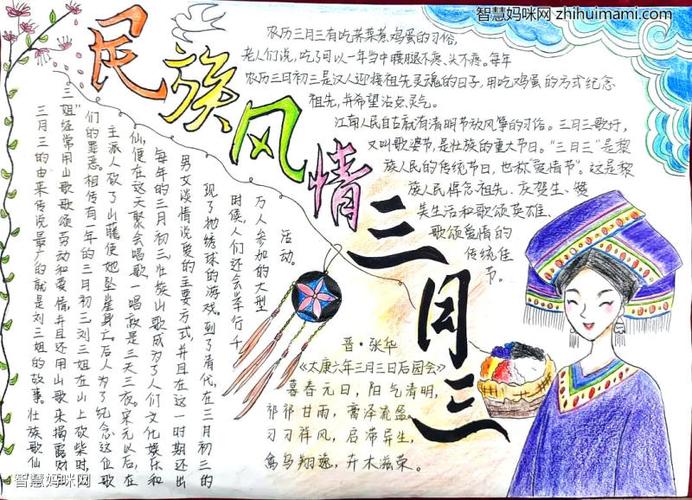 智慧妈咪网 zhihuimami.com
民族风情三月三
农历三月三有吃荠菜煮鸡蛋的习俗,
老人们说,吃了可以一年当中腰腿不疼、头不疼。每年
农历三月初三是汉人迎接祖先灵魂的日子,用吃鸡蛋的方式纪念
祖先,并希望沾点灵气。
江南人民自古就有清明节放风筝的习俗。三月三歌圩,
又叫歌婆节,是壮族的重大节日。"三月三"是黎
族人民的传统节日,也称"爱情节"。这是黎
族人民悼念祖先、庆贺生、赞
美生活和歌颂英雄、
歌颂爱情的
传统佳
节。
三月三的由来传说最广的就是刘三姐的故事。壮族歌仙
三姐"经常用山歌歌颂劳动和爱情,并且还用山歌来揭露财
们的罪恶。相传有一年的三月初三刘三姐在山上砍柴时,
主派人砍了山藤使她坠崖身亡。后人为了纪念这位歌
仙,便在这天聚会唱歌,一唱就是三天三夜。宋元以后,在
每年的三月初三壮族山歌成为了人们文化娱乐和
男女谈情说爱的主要方式,并且在这一时期还出
现了抛绣球的游戏。到了清代,在三月初三的
时候,人们还会举行千
万人参加的大型
活动。
晋·张华
《太康六年三月三日后园会》
暮春元日,阳气清明,
祁祁甘雨,膏泽流盈。
习习祥风,启滞导生,
禽鸟翔逸,卉木滋荣。
智慧妈咪网